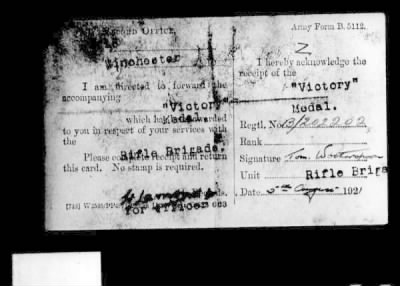 Record Office,
Winchester
I am directed to forward the
accompanying
"Victory"
Medal.
which has been awarded
to you in respect of your services with
the
Rifle Brigade.
Please complete receipt and return
this card. No stamp is required.
for Officer
Army Form B. 5112.
Z
I hereby acknowledge the
receipt of the
"Victory"
Medal.
Regtl. No. B/202202
Rank
Signature Tom
Unit Rifle Briga
Date 5th August 1921